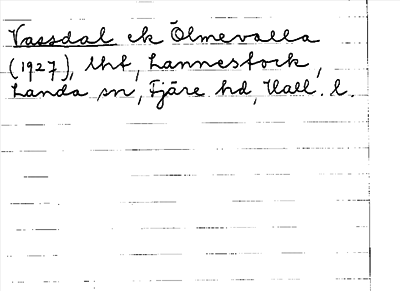 Vassdal ek Ölmevalla
(1927), lht, Lannestock,
Landa sn, Fjäre hd, Hall. l.